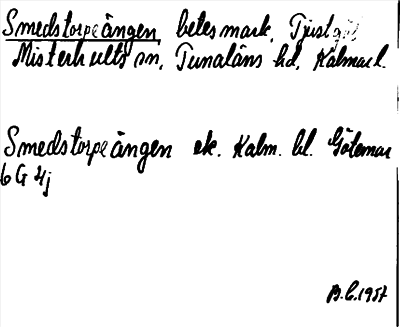 Smedstorpeängen betesmark, Tjust
Misterhults sn, Tunaläns hd, Kalmar l.
Smedstorpeängen ek. Kalm. bl. Götemar
6 G 4j
B.C. 1957